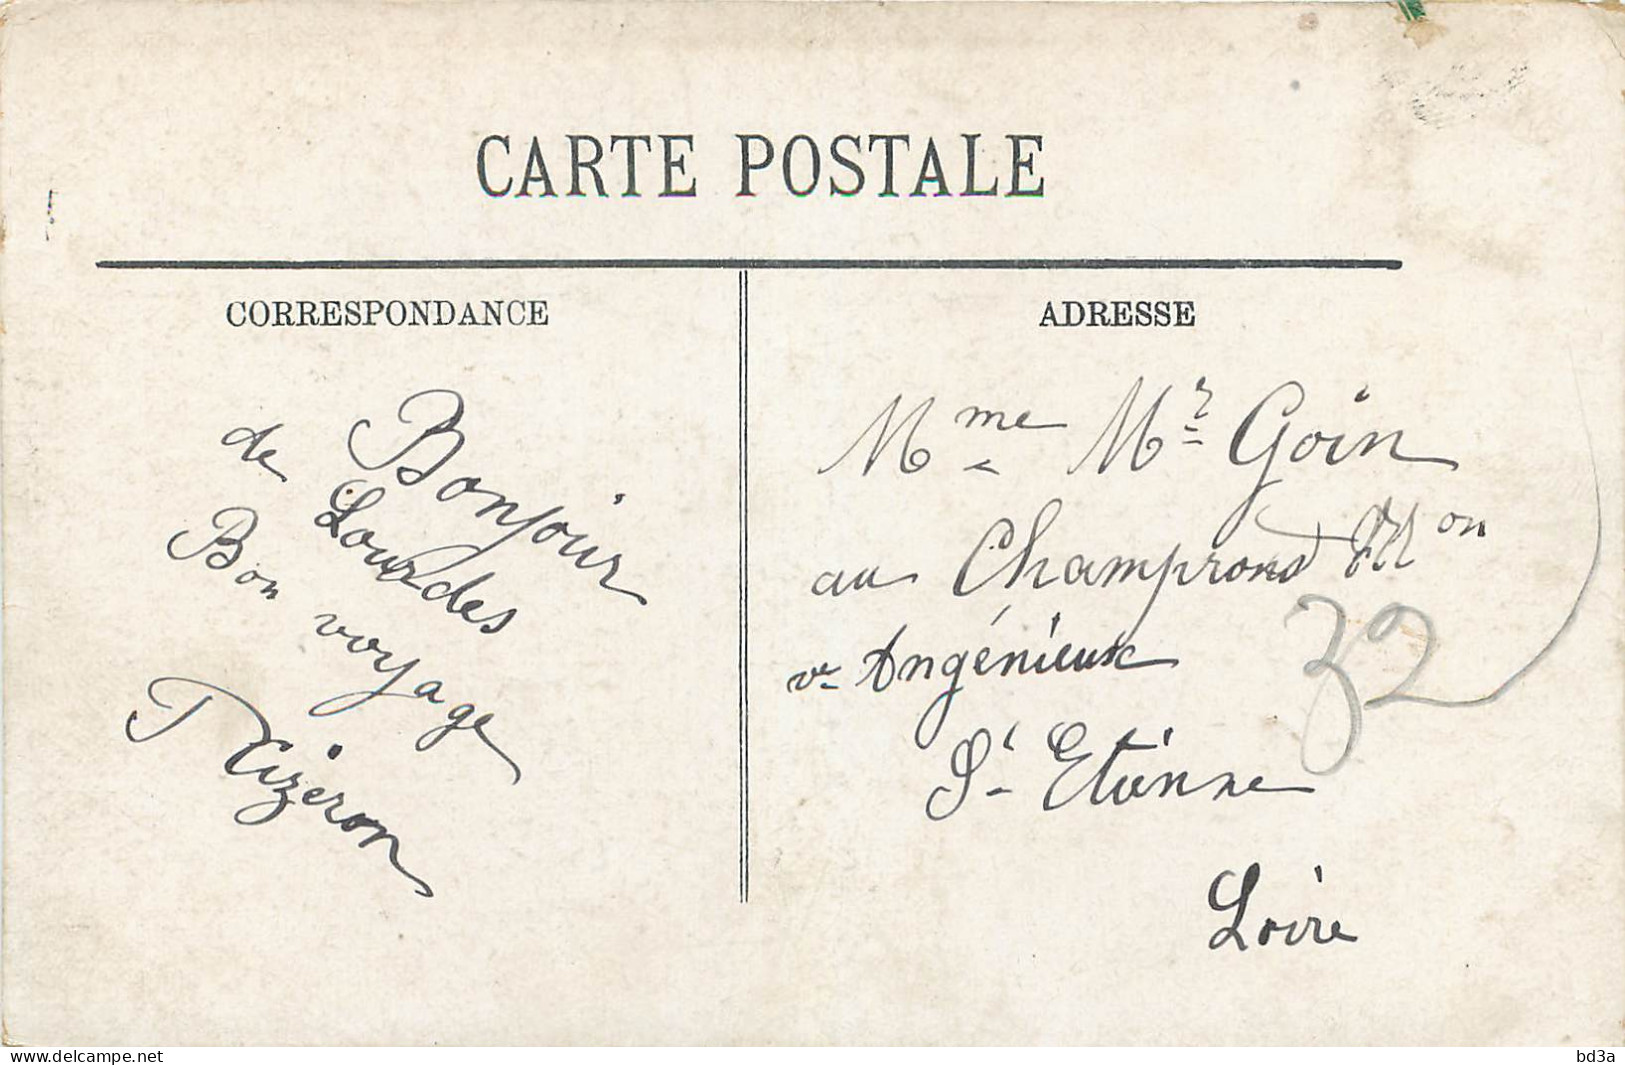 CARTE POSTALE
CORRESPONDANCE
Bonjour
de Lourdes
Bon voyage
ADRESSE
Mme Mr Goin
au Champrond Mon
ve Angénieux
St Etienne
Loire
32
www.delcampe.net
bd3a